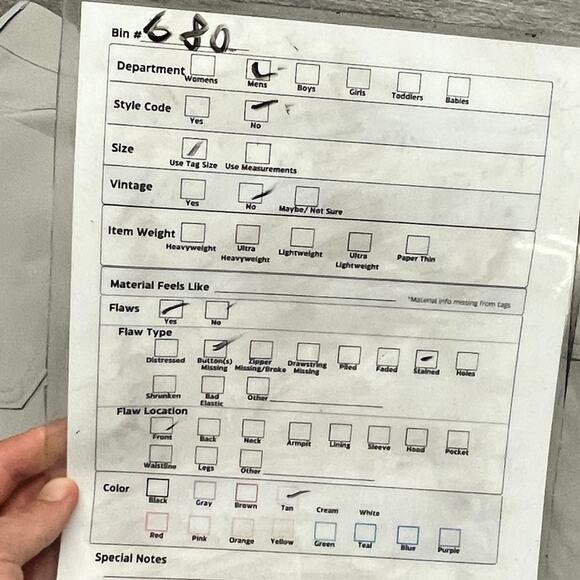 Bin # 680
Department Womens Mens Boys Girls Toddlers Babies
Style Code Yes No
Size Use Tag Size Use Measurements
Vintage Yes No Maybe/ Not Sure
Item Weight Heavyweight Ultra Heavyweight Lightweight Ultra Lightweight Paper Thin
Material Feels Like *Material info missing from tags
Flaws Yes No
Flaw Type
Distressed Button(s) Missing Zipper Missing/Broke Drawstring Missing Piled Faded Stained Holes
Shrunken Bad Elastic Other
Flaw Location
Front Back Neck Armpit Lining Sleeve Hood Pocket
Waistline Legs Other
Color Black Gray Brown Tan Cream White
Red Pink Orange Yellow Green Teal Blue Purple
Special Notes